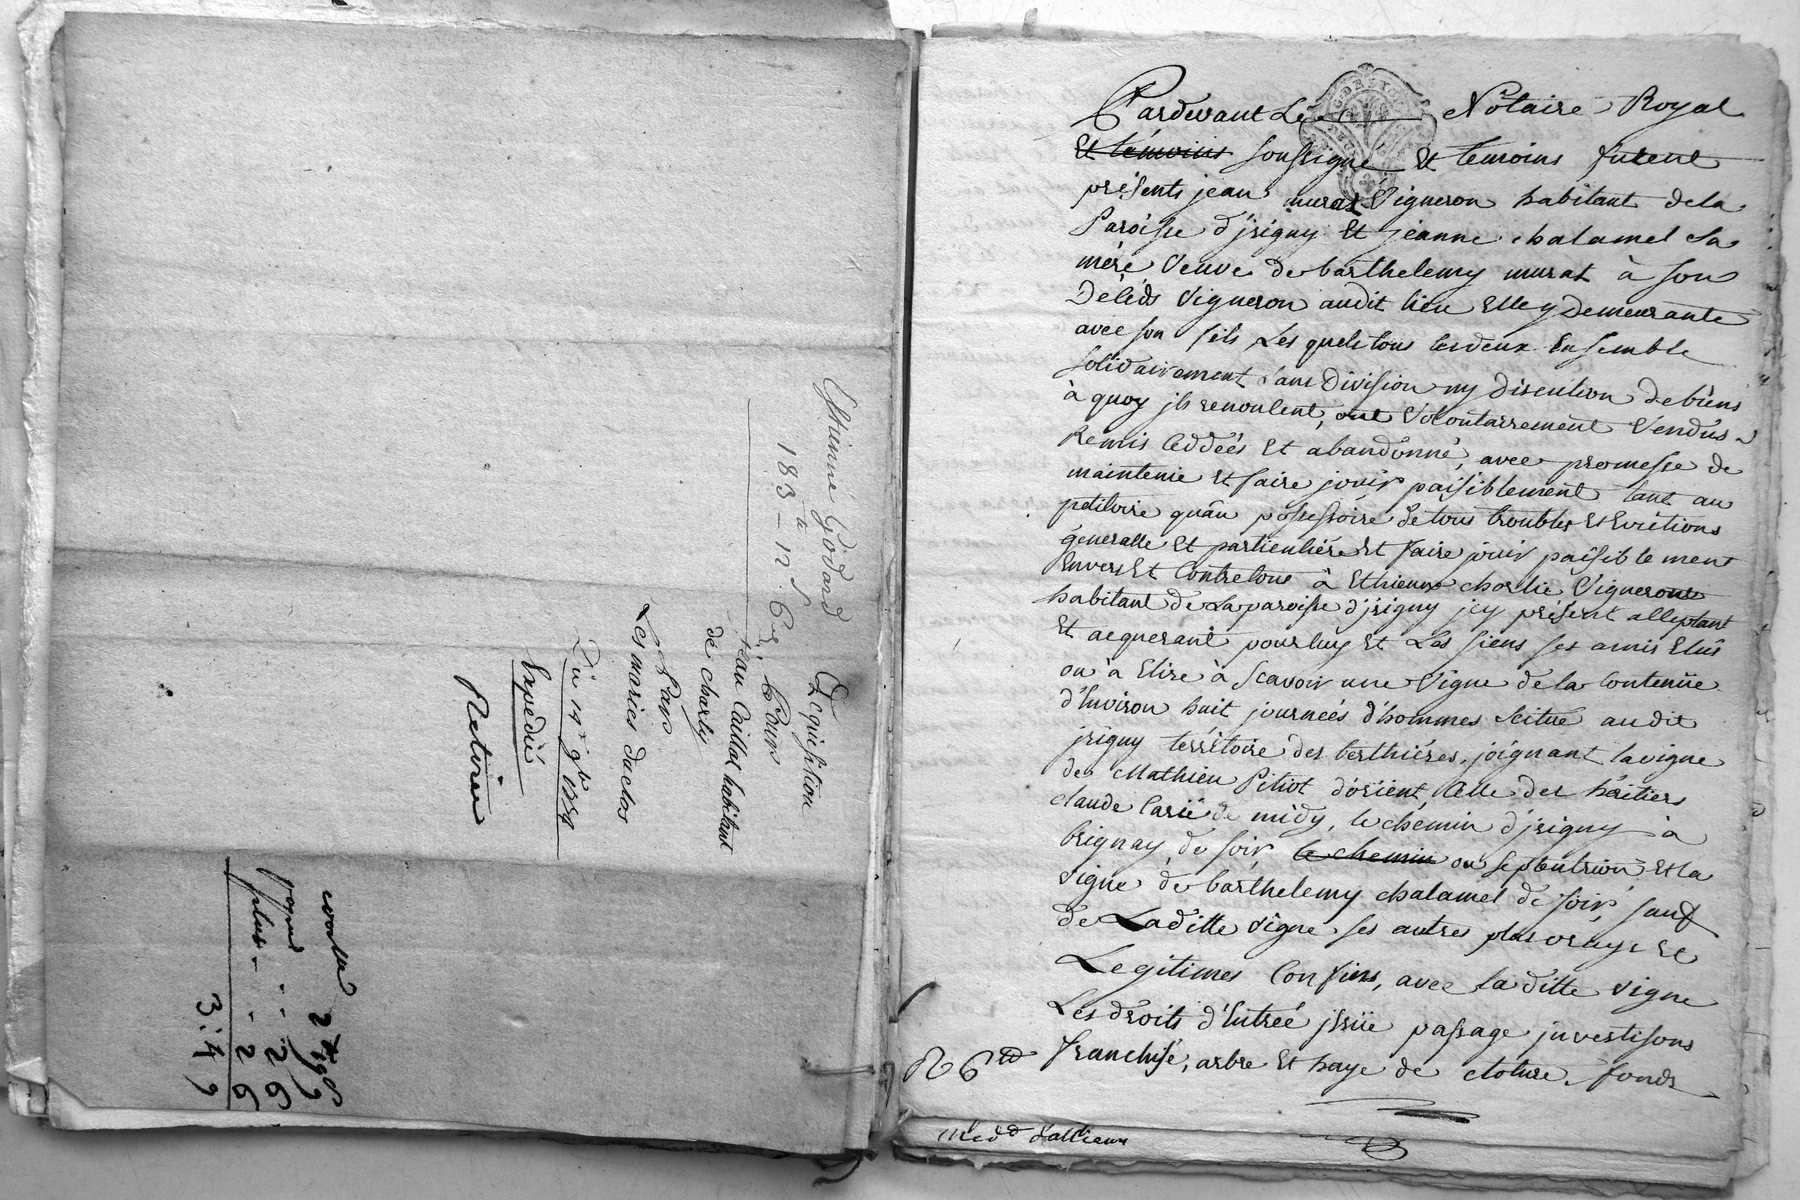 Estienne Godard
183 – 12
Acquisition
Pour
jean Caillot habitant
de charly
Par
Les mariés duclos
Du 14 9bre
Expedié
Retirer
3:4
Pardevant Le Notaire Royal
Et témoins soussigné Et temoins furent
présents jean murat Vigneron habitant dela
Paroisse d'jrigny Et jeanne chalamel sa
mére Veuve de barthelemy murat à son
Déléds Vigneron audit lieu Elle y Demeurante
avec son fils Les quels tous les deux Ensemble
solidairement sans Division ny discution de biens
à quoy jls renonlent, ont Volontairement Vendus
Remis Ceddéés Et abandonné, avec promesse de
maintenir Et faire jouir paisiblement tant au
petitoire qu'au possessoire de tous troubles Et Evictions
géneralle Et particuliére Et faire jouir paisiblement
Envers Et Contre tous à Ethienne charlie Vigneront
habitant de La paroisse d'jrigny jcy présent alleptant
Et acquerant pour luy Et Les siens ses amis Elus
ou à Elire à scavoir une Vigne de la Contenüe
d'Environ huit journeés d'hommes scitue audit
jrigny térritoire des berthiéres, joignant la vigne
de Mathieu Pitiot d'oriént, Celle des héritiers
claude Carié de midy, le chemin d'jrigny à
brignay, de soir, le chemin ou septentrion Et la
Vigne de barthelemy chalamel de soir, sauf
de Laditte Vigne ses autres plus vrays Et
Legitimes Confins, avec laditte Vigne
Les droits d'Entreé jssüe passage jnvestisons
franchise, arbre Et haye de cloture, fonds